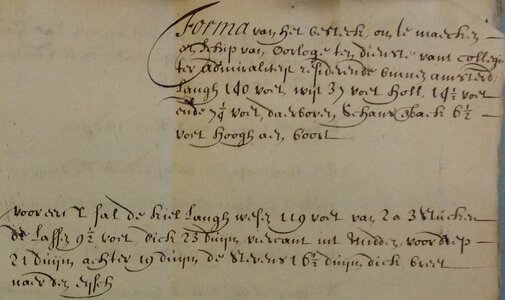 Forma van het besteck, om te maecken
een schip van Oorloge ten dienste vant collegie
ter admiraliteijt residerende binnen amsterd
Langh 140 voet, wijt 37 voet holl 14½ voet
ende 7¼ voet, daerboven, Schans gback 6½
voet hoogh aen boort
vooreerst sal de kiel langh wesen 119 voet van 2 a 3 stucken
de lassen 9½ voet, dick 23 duijm viercant int midden, voor diep
21 duijm achter 19 duijm de stevens 16½ duijm dick breet
naer den eijsch